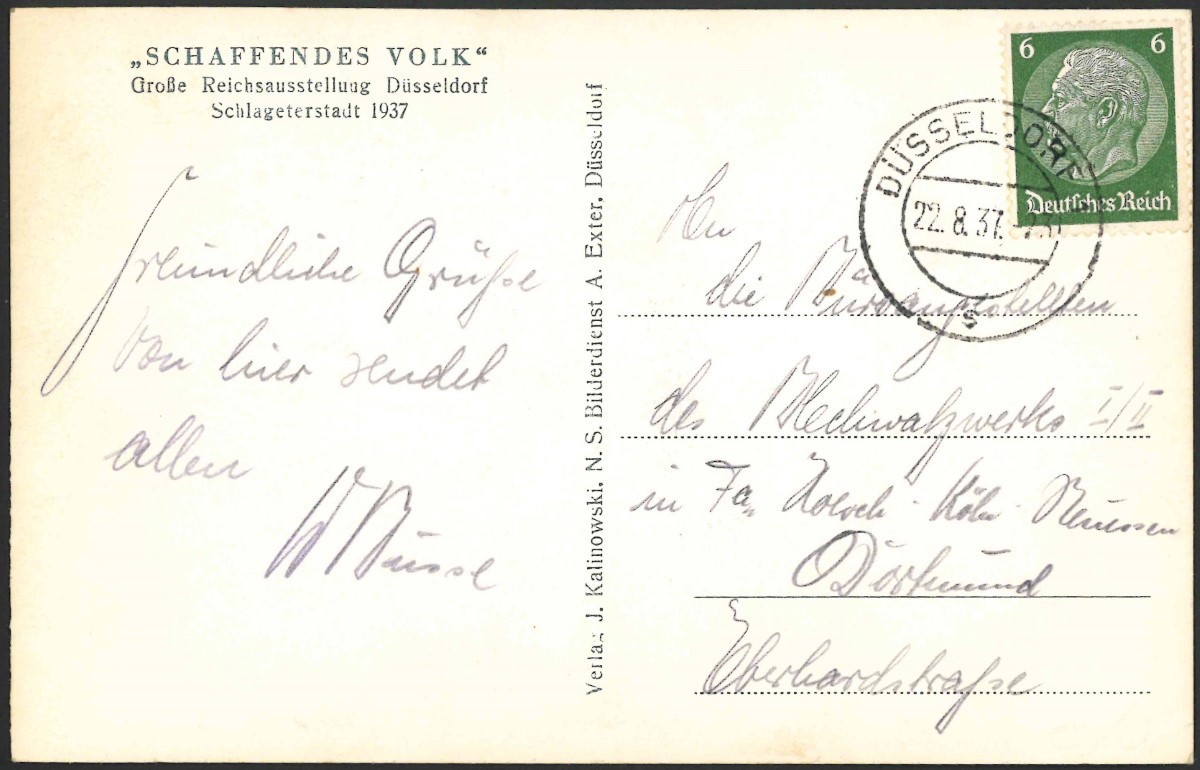 „SCHAFFENDES VOLK“
Große Reichsausstellung Düsseldorf
Schlageterstadt 1937
Freundliche Grüße
von hier sendet
allen
Verlag J. Kalinowski, N. S. Bilderdienst A. Exter, Düsseldorf
6 6
Deutsches Reich
DÜSSELDORF
22.8.37
s
die Büroangestellten
des Blechwalzwerks I/II
in Fa. Hoesch-Köln-Neuessen
Dortmund
Eberhardstraße